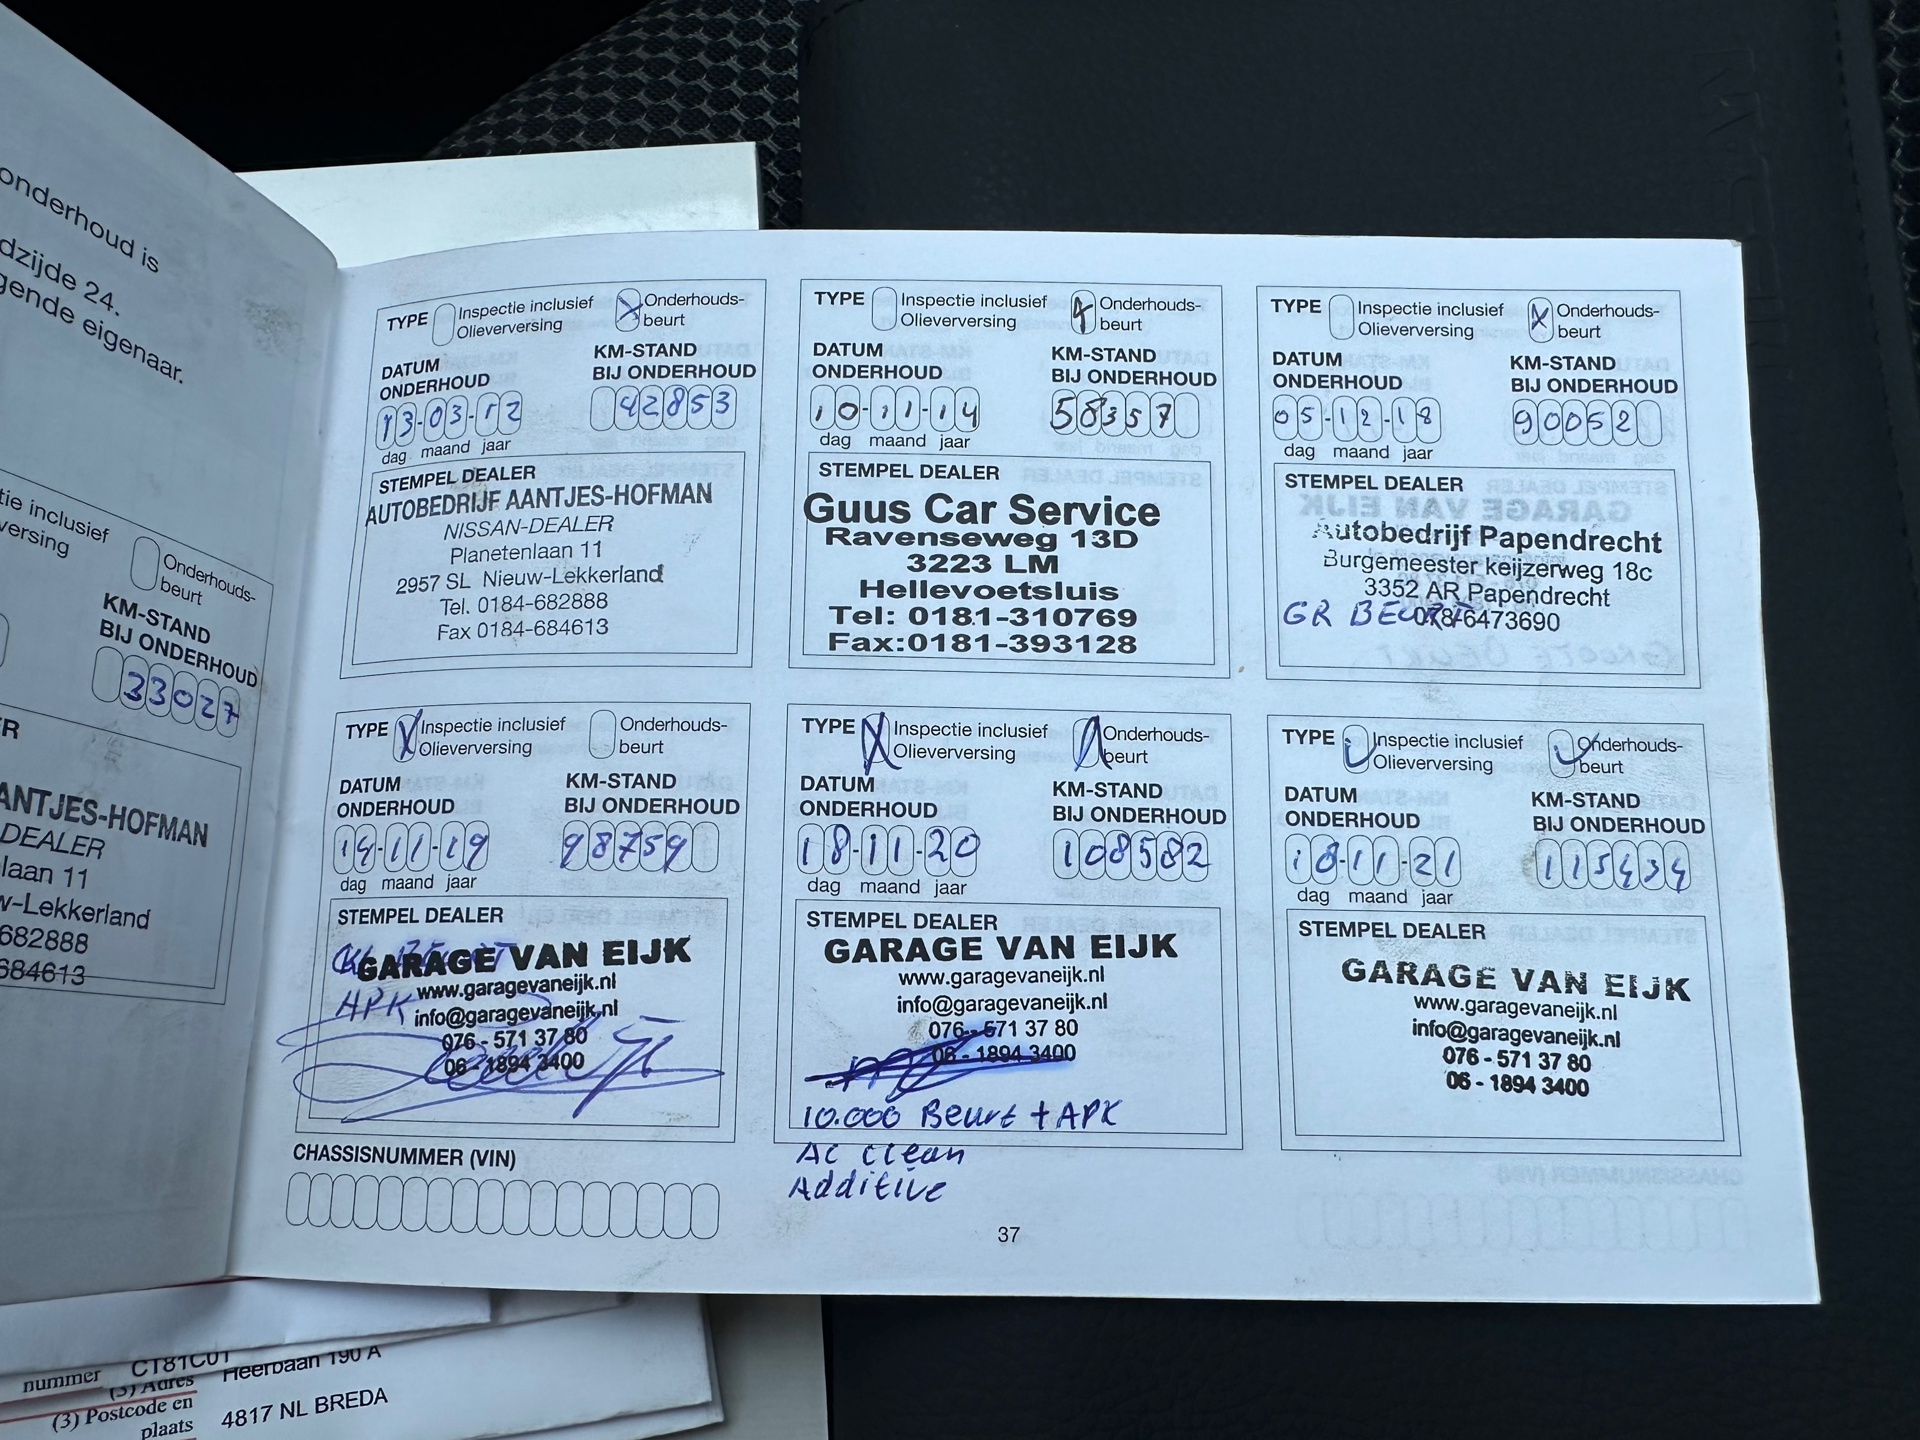 onderhoud is
dzijde 24.
gende eigenaar.
tie inclusief
versing
Onderhouds-
beurt
KM-STAND
BIJ ONDERHOUD
33027
ANTJES-HOFMAN
DEALER
laan 11
w-Lekkerland
682888
684613
TYPE Inspectie inclusief
Olieverversing
X Onderhouds-
beurt
DATUM
ONDERHOUD
KM-STAND
BIJ ONDERHOUD
13-03-12
42853
dag maand jaar
STEMPEL DEALER
AUTOBEDRIJF AANTJES-HOFMAN
NISSAN-DEALER
Planetenlaan 11
2957 SL Nieuw-Lekkerland
Tel. 0184-682888
Fax 0184-684613
TYPE Inspectie inclusief
Olieverversing
Onderhouds-
beurt
DATUM
ONDERHOUD
KM-STAND
BIJ ONDERHOUD
10-11-14
58357
dag maand jaar
STEMPEL DEALER
Guus Car Service
Ravenseweg 13D
3223 LM
Hellevoetsluis
Tel: 0181-310769
Fax:0181-393128
TYPE Inspectie inclusief
Olieverversing
X Onderhouds-
beurt
DATUM
ONDERHOUD
KM-STAND
BIJ ONDERHOUD
05-12-18
90052
dag maand jaar
STEMPEL DEALER
Autobedrijf Papendrecht
Burgemeester keijzerweg 18c
3352 AR Papendrecht
078-6473690
GR BEURT
TYPE X Inspectie inclusief
Olieverversing
Onderhouds-
beurt
DATUM
ONDERHOUD
KM-STAND
BIJ ONDERHOUD
14-11-19
98759
dag maand jaar
STEMPEL DEALER
GARAGE VAN EIJK
www.garagevaneijk.nl
APK
info@garagevaneijk.nl
076 - 571 37 80
06 - 1894 3400
TYPE X Inspectie inclusief
Olieverversing
Onderhouds-
beurt
DATUM
ONDERHOUD
KM-STAND
BIJ ONDERHOUD
18-11-20
108582
dag maand jaar
STEMPEL DEALER
GARAGE VAN EIJK
www.garagevaneijk.nl
info@garagevaneijk.nl
076 - 571 37 80
06 - 1894 3400
10.000 Beurt + APK
AC clean
Additive
TYPE Inspectie inclusief
Olieverversing
Onderhouds-
beurt
DATUM
ONDERHOUD
KM-STAND
BIJ ONDERHOUD
18-11-21
115434
dag maand jaar
STEMPEL DEALER
GARAGE VAN EIJK
www.garagevaneijk.nl
info@garagevaneijk.nl
076 - 571 37 80
06 - 1894 3400
CHASSISNUMMER (VIN)
37
nummer CT81C01
(3) Adres Heerbaan 190 A
(3) Postcode en
plaats
4817 NL BREDA